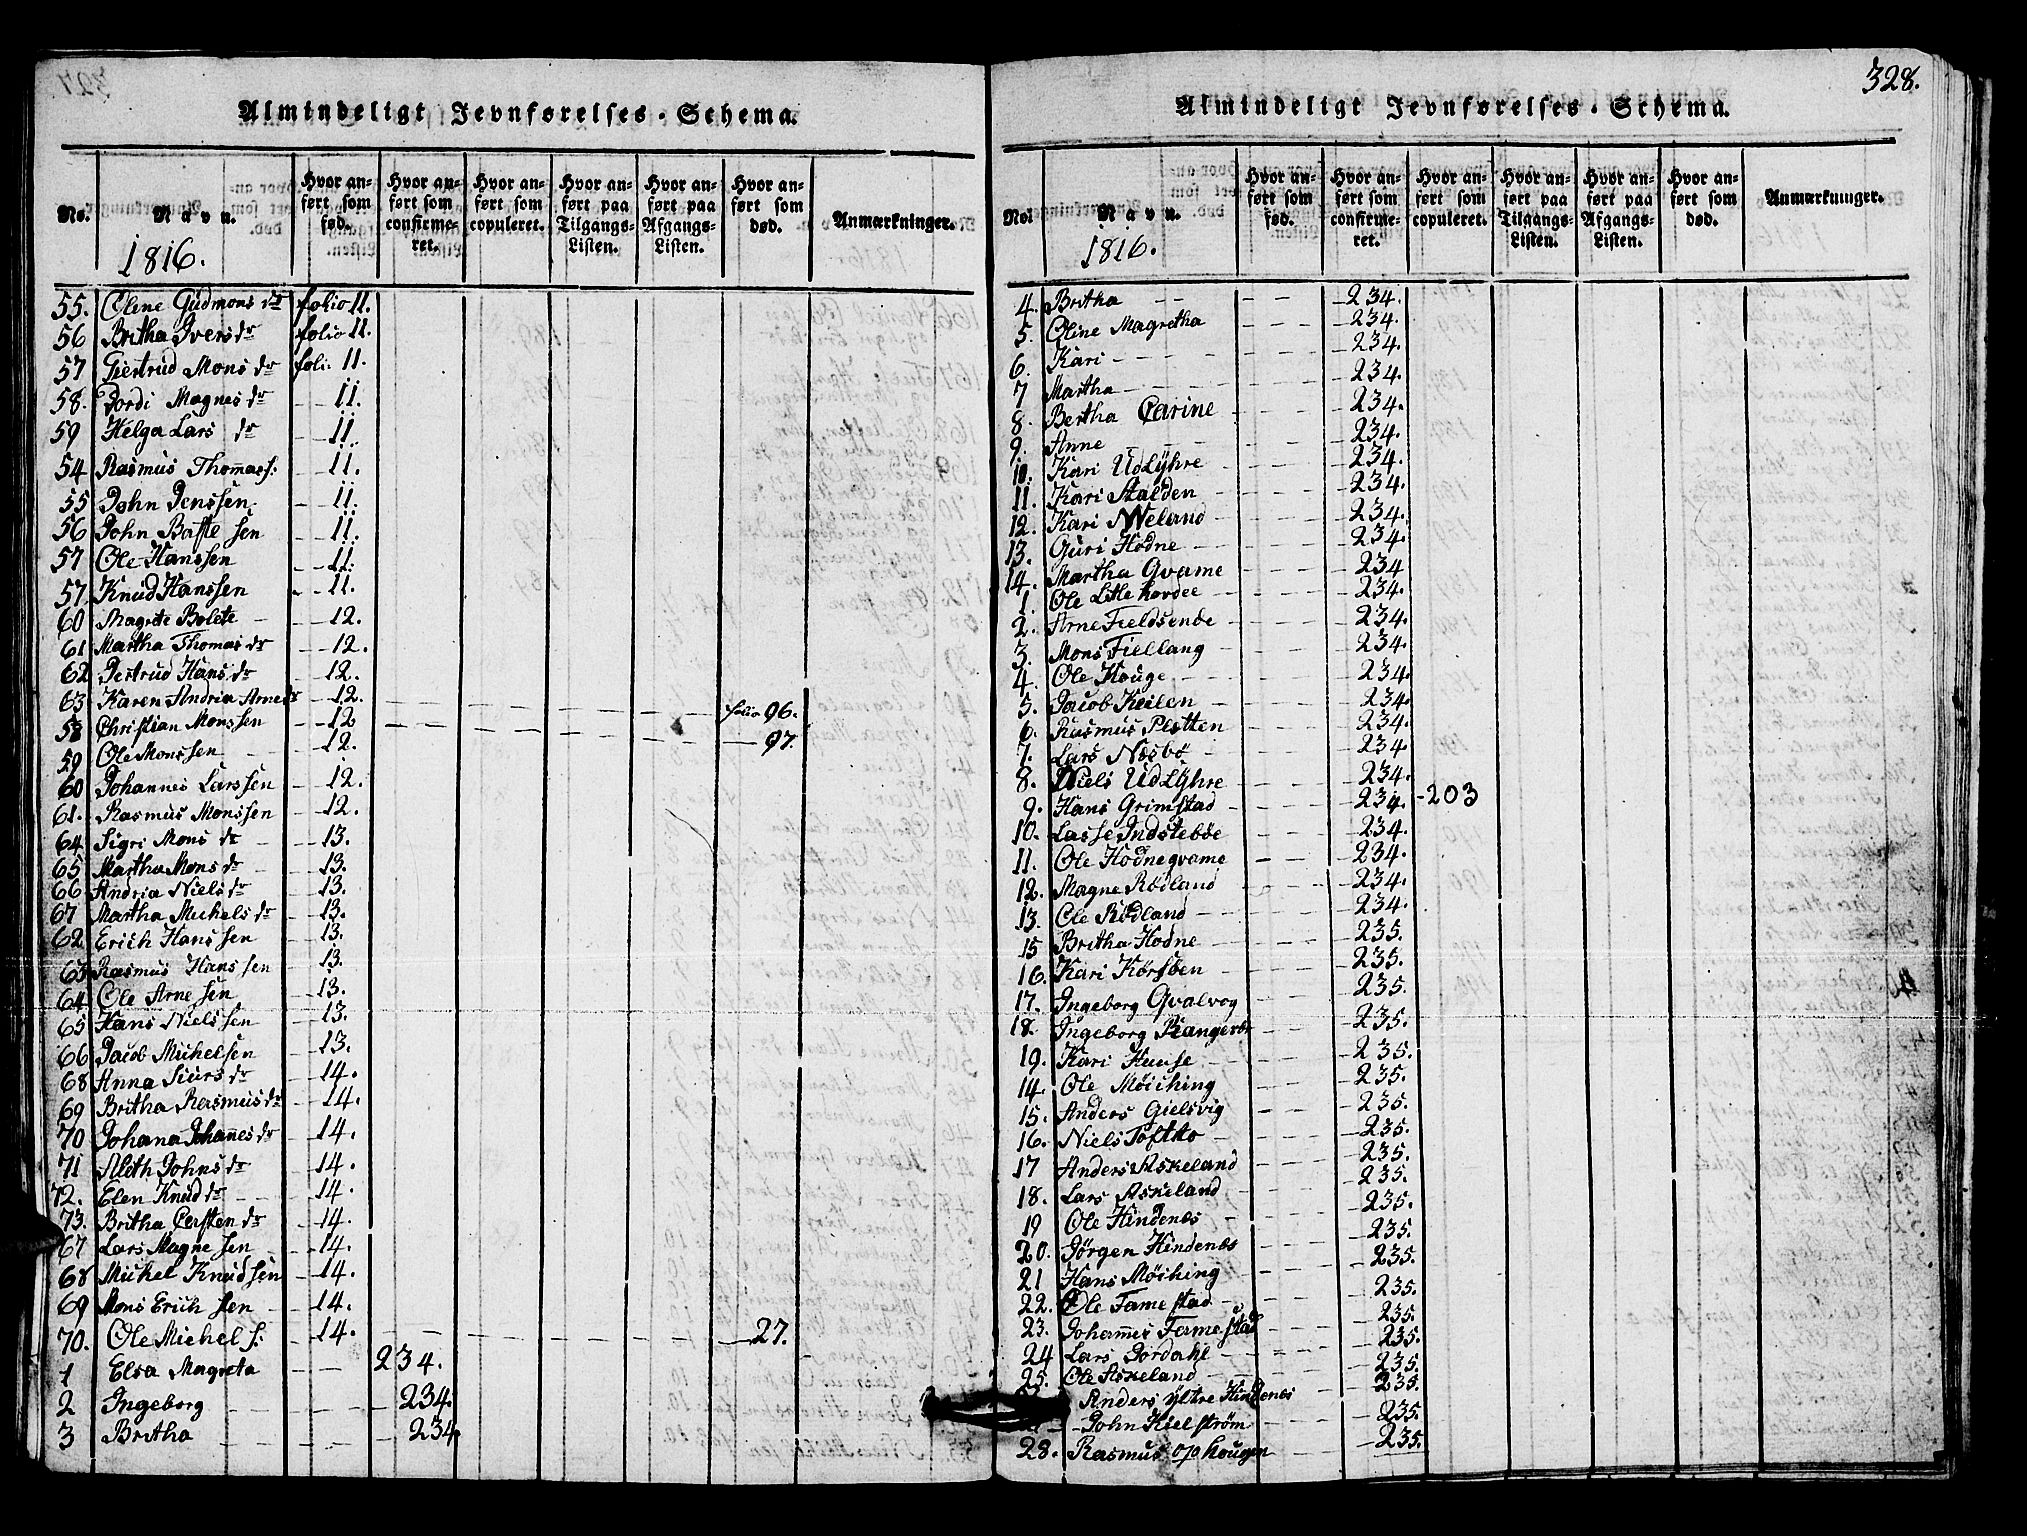 328.
Almindeligt Jevnførelses-Schema.
No. Navn. Hvor anført som fød. Hvor anført som confirmeret. Hvor anført som copuleret. Hvor anført paa Tilgangs-Listen. Hvor anført paa Afgangs-Listen. Hvor anført som død. Anmærkninger.
1816.
55. Olene Gudmons dr folio 11.
56 Britha Ivers dr folio 11.
57 Giertrud Mons dr foli. 11.
58. Gordi Magnes dr 11.
59 Helga Lars dr 11.
54 Rasmus Thomass. 11.
55 John Jenssen 11.
56 John Baste sen 11.
57 Ole Hanssen 11.
57. Knud Hanssen 11.
60 Magrete Bolete 12.
61 Martha Thomas dr 12.
62 Gertrud Hans dr 12.
63 Karen Andria Arne dr 12.
58 Christian Monssen 12 folio 96.
59 Ole Monssen 12. 97.
60 Johannes Larssen 12.
61. Rasmus Monssen 12.
64 Sigri Mons dr 13.
65 Martha Mons dr 13.
66 Andria Niels dr 13.
67 Martha Michels dr 13.
62 Erich Hanssen 13.
63 Rasmus Hanssen 13.
64 Ole Arnesen 13.
65 Hans Nielssen 13.
66 Jacob Michelsen 13.
68 Anna Siurs dr 14.
69 Britha Rasmus dr 14.
70 Johana Johannes dr 14.
71 Aleth Johns dr 14.
72. Elen Knud dr 14.
73. Britha Cersten dr 14.
67 Lars Magnesen 14.
68 Michel Knudsen 14.
69 Mons Erichsen 14.
70. Ole Michels. 14. 27.
1 Elsa Magreta 234.
2 Ingeborg 234.
3 Britha 234.
Almindeligt Jevnførelses-Schema.
No. Navn. Hvor anført som fød. Hvor anført som confirmeret. Hvor anført som copuleret. Hvor anført paa Tilgangs-Listen. Hvor anført paa Afgangs-Listen. Hvor anført som død. Anmærkninger.
1816.
4. Britha 234.
5. Oline Magretha 234.
6. Kari 234.
7 Martha 234.
8. Bertha Carine 234.
9. Anne 234.
10. Kari Udlyhre 234.
11. Kari Stalden 234.
12. Kari Weland 234.
13. Guri Hodne 234.
14. Martha Qvame 234
1. Ole Litle 234.
2. Arne Fieldsende 234.
3. Mons Fiellang 234.
4. Ole Houge 234.
5. Jacob Keilen 234.
6. Rasmus Pletten 234.
7. Lars Næsbø 234.
8. Niels Udlyhre 234.
9. Hans Grimstad 234. 203
10. Lasse Indstebøe 234.
11. Ole Hodneqvame 234.
12. Magne Rødland 234.
13. Ole Rødland 234.
15 Britha Hodne 235.
16. Kari Kørsøen 235.
17. Ingeborg Qvalvog 235.
18. Ingeborg 235.
19. Kari Huuse 235.
14. Ole Møiching 235.
15. Anders Gielsvig 235.
16. Niels Toftto 235.
17 Anders Askeland 235.
18. Lars Askeland 235.
19 Ole Hindenes 235.
20. Jørgen Hindenes 235.
21 Hans Møiching 235.
22. Ole Famestad 235.
23. Johannes Famestad 235.
24 Lars Dordahl 235.
25. Ole Askeland 235.
Anders Yttre Hindenes 235.
John Kielstrøm 235.
28. Rasmus opo Hougen 235.